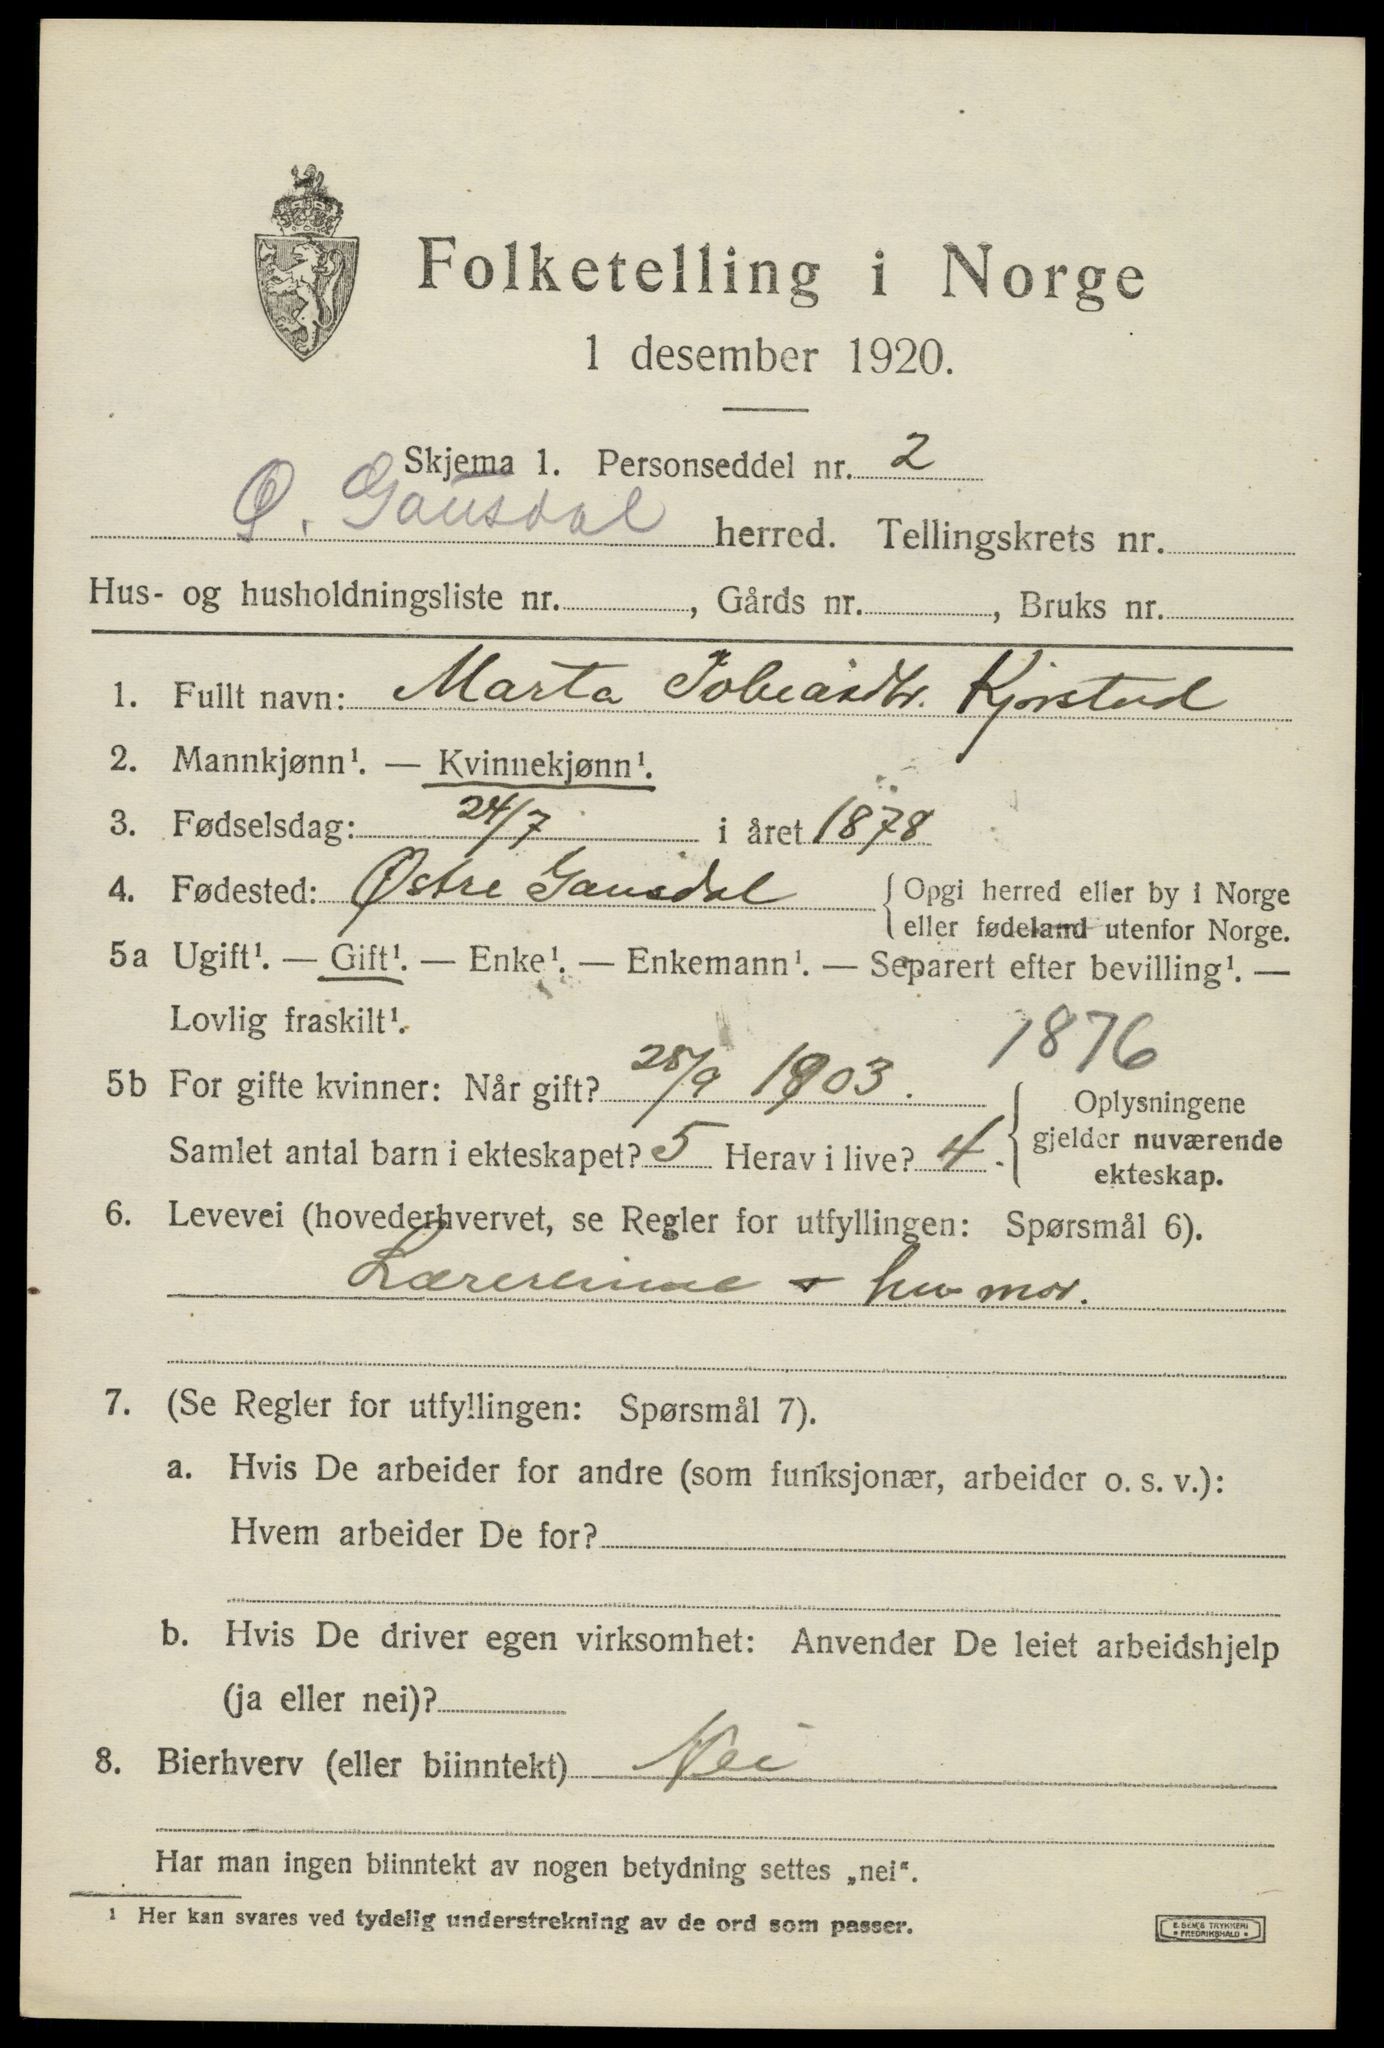 Folketelling i Norge
1 desember 1920.
Skjema 1. Personseddel nr. 2
Ø. Gausdal herred. Tellingskrets nr.
Hus- og husholdningsliste nr. , Gårds nr. , Bruks nr.
1. Fullt navn: Marta Tobiasdtr. Kjørstad
2. Mannkjønn¹. — Kvinnekjønn¹.
3. Fødselsdag: 24/7 i året 1878
4. Fødested: Østre Gausdal { Opgi herred eller by i Norge
eller fødeland utenfor Norge.
5a Ugift¹. — Gift¹. — Enke¹. — Enkemann¹. — Separert efter bevilling¹. —
Lovlig fraskilt¹.
1876
5b For gifte kvinner: Når gift? 28/9 1903. { Oplysningene
Samlet antal barn i ekteskapet? 5 Herav i live? 4. gjelder nuværende
ekteskap.
6. Levevei (hovederhvervet, se Regler for utfyllingen: Spørsmål 6).
Lærerinne + husmor.
7. (Se Regler for utfyllingen: Spørsmål 7).
a. Hvis De arbeider for andre (som funksjonær, arbeider o. s. v.):
Hvem arbeider De for?
b. Hvis De driver egen virksomhet: Anvender De leiet arbeidshjelp
(ja eller nei)?
8. Bierhverv (eller biinntekt) Nei
Har man ingen biinntekt av nogen betydning settes „nei“.
¹ Her kan svares ved tydelig understrekning av de ord som passer.
E. SEM'S TRYKKERI
• FREDRIKSHALD •